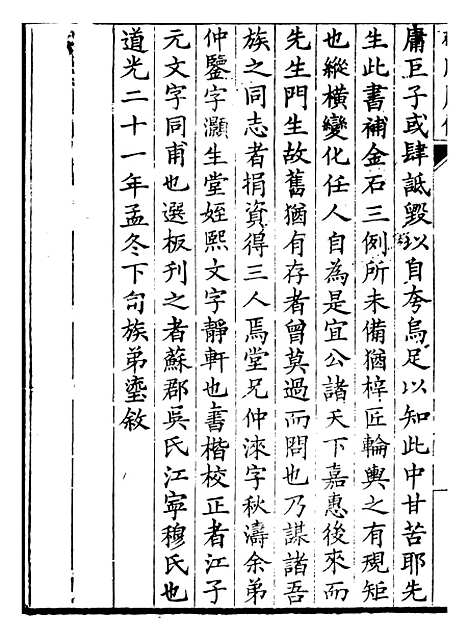 庸巨子或肆詆毀以自夸烏足以知此中甘苦耶先
生此書補金石三例所未備猶梓匠輪輿之有規矩
也縱橫變化任人自為是宜公諸天下嘉惠後來而
先生門生故舊猶有存者曾莫過而問也乃謀諸吾
族之同志者捐資得三人焉堂兄仲淶字秋濤余弟
仲鑒字灝生堂姪熙文字靜軒也書楷校正者江子
元文字同甫也選板刊之者蘇郡吳氏江寧穆氏也
道光二十一年孟冬下旬族弟塗敘